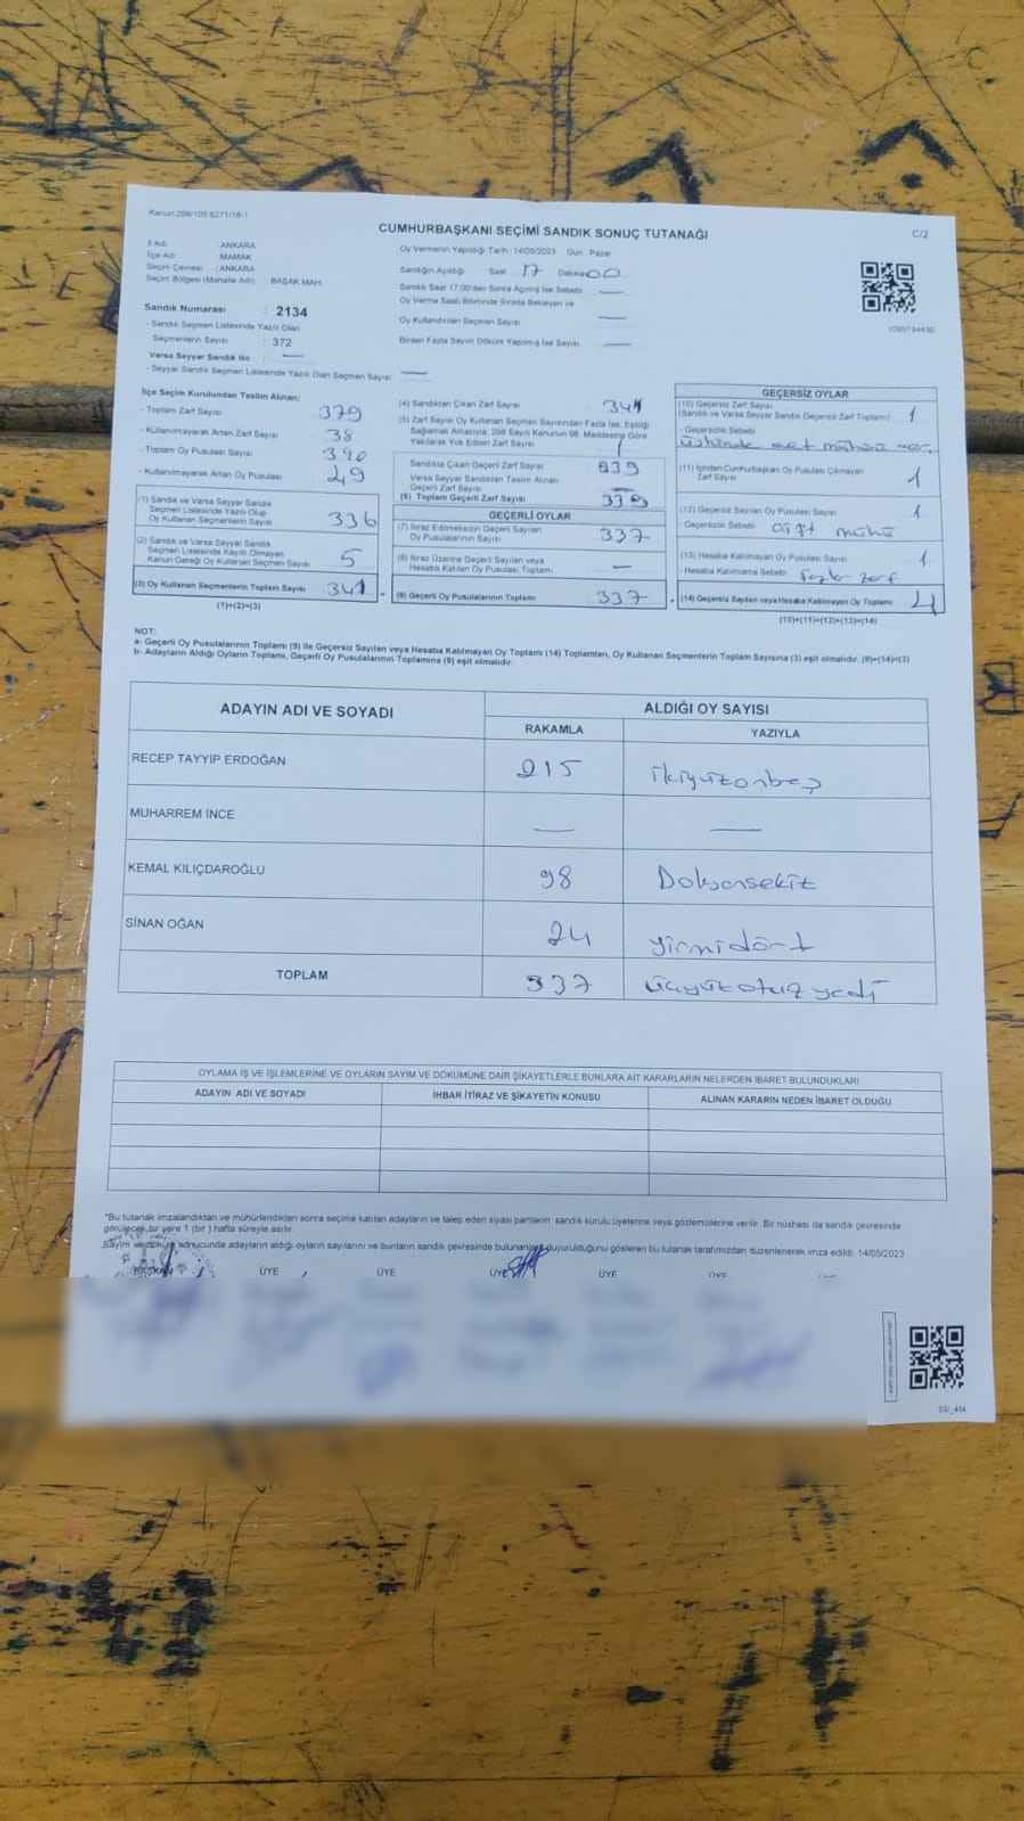 CUMHURBAŞKANI SEÇİMİ SANDIK SONUÇ TUTANAĞI
C/2
İl Adı : ANKARA
İlçe Adı : MAMAK
Seçim Çevresi : ANKARA
Seçim Bölgesi (Mahalle Adı) : BAŞAK MAH.
Oy Vermenin Yapıldığı Tarih : 14/05/2023 Gün : Pazar
Sandığın Açıldığı Saat : 17 Dakika 00
Sandık Saat 17:00'den Sonra Açılmış İse Sebebi —
Oy Verme Saati Bitiminde Sırada Bekleyen ve
Oy Kullandırılan Seçmen Sayısı —
Birden Fazla Sayım Döküm Yapılmış İse Sayısı —
Sandık Numarası : 2134
- Sandık Seçmen Listesinde Yazılı Olan
Seçmenlerin Sayısı : 372
Varsa Seyyar Sandık No : —
- Seyyar Sandık Seçmen Listesinde Yazılı Olan Seçmen Sayısı —
İlçe Seçim Kurulundan Teslim Alınan:
- Toplam Zarf Sayısı 379
- Kullanılmayarak Artan Zarf Sayısı 38
- Toplam Oy Pusulası Sayısı 390
- Kullanılmayarak Artan Oy Pusulası 49
(1) Sandık ve Varsa Seyyar Sandık
Seçmen Listesinde Yazılı Olup
Oy Kullanan Seçmenlerin Sayısı 336
(2) Sandık ve Varsa Seyyar Sandık
Seçmen Listesinde Kayıtlı Olmayan
Kanun Gereği Oy Kullanan Seçmen Sayısı 5
(3) Oy Kullanan Seçmenlerin Toplam Sayısı 341
(1)+(2)=(3)
(4) Sandıktan Çıkan Zarf Sayısı 341
(5) Zarf Sayısı Oy Kullanan Seçmen Sayısından Fazla İse, Eşitliği
Sağlamak Amacıyla, 298 Sayılı Kanunun 98. Maddesine Göre
Yakılarak Yok Edilen Zarf Sayısı 1
Sandıkta Çıkan Geçerli Zarf Sayısı 339
Varsa Seyyar Sandıktan Teslim Alınan
Geçerli Zarf Sayısı —
(6) Toplam Geçerli Zarf Sayısı 339
GEÇERLİ OYLAR
(7) İtiraz Edilmeksizin Geçerli Sayılan
Oy Pusulalarının Sayısı 337
(8) İtiraz Üzerine Geçerli Sayılan veya
Hesaba Katılan Oy Pusulası Toplamı —
(9) Geçerli Oy Pusulalarının Toplamı 337
GEÇERSİZ OYLAR
(10) Geçersiz Zarf Sayısı
(Sandık ve Varsa Seyyar Sandık Geçersiz Zarf Toplamı) 1
- Geçersizlik Sebebi:
üstünde evet mührü var.
(11) İçinden Cumhurbaşkanı Oy Pusulası Çıkmayan
Zarf Sayısı 1
(12) Geçersiz Sayılan Oy Pusulası Sayısı 1
Geçersizlik Sebebi: Çift mühür
(13) Hesaba Katılmayan Oy Pusulası Sayısı 1
- Hesaba Katılmama Sebebi: fazla zarf
(14) Geçersiz Sayılan veya Hesaba Katılmayan Oy Toplamı 4
(10)+(11)+(12)+(13)=(14)
NOT:
a- Geçerli Oy Pusulalarının Toplamı (9) ile Geçersiz Sayılan veya Hesaba Katılmayan Oy Toplamı (14) Toplamları, Oy Kullanan Seçmenlerin Toplam Sayısına (3) eşit olmalıdır. (9)+(14)=(3)
b- Adayların Aldığı Oyların Toplamı, Geçerli Oy Pusulalarının Toplamına (9) eşit olmalıdır.
ADAYIN ADI VE SOYADI
ALDIĞI OY SAYISI
RAKAMLA YAZIYLA
RECEP TAYYİP ERDOĞAN 215 ikiyüzonbeş
MUHARREM İNCE — —
KEMAL KILIÇDAROĞLU 98 Doksansekiz
SİNAN OĞAN 24 yirmidört
TOPLAM 337 üçyüzotuzyedi
OYLAMA İŞ VE İŞLEMLERİNE VE OYLARIN SAYIM VE DÖKÜMÜNE DAİR ŞİKAYETLERLE BUNLARA AİT KARARLARIN NELERDEN İBARET BULUNDUKLARI
ADAYIN ADI VE SOYADI İHBAR İTİRAZ VE ŞİKAYETİN KONUSU ALINAN KARARIN NEDEN İBARET OLDUĞU
"Bu tutanak imzalandıktan ve mühürlendikten sonra seçime katılan adayların ve talep eden siyasi partilerin sandık kurulu üyelerine veya gözlemcilerine verilir. Bir nüshası da sandık çevresinde
görülecek bir yere 1 (bir) hafta süreyle asılır.
Sayım ve döküm sonucunda adayların aldığı oyların sayılarını ve bunların sandık çevresinde bulunanlara duyurulduğunu gösteren bu tutanak tarafımızdan düzenlenerek imza edildi. 14/05/2023
BAŞKAN ÜYE ÜYE ÜYE ÜYE ÜYE